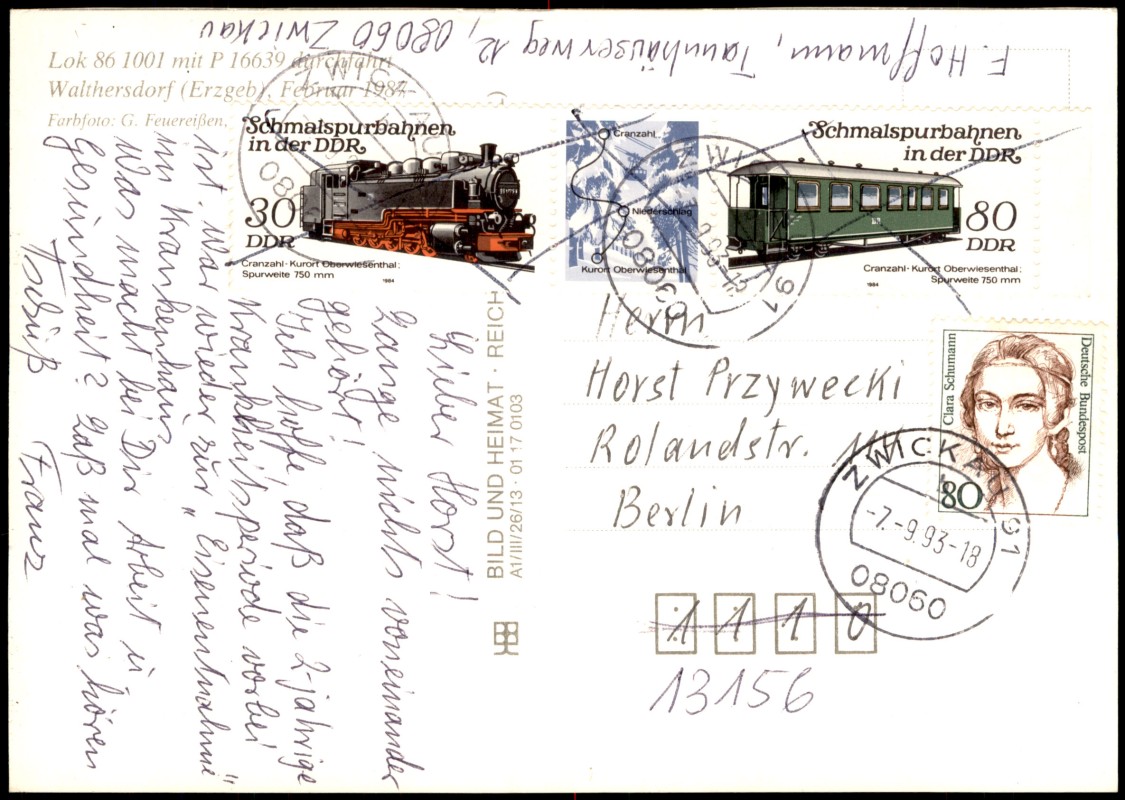 F. Hoffmann, Tannhäuserweg 12, 08060 Zwickau
Lok 86 1001 mit P 16639 durchfährt
Walthersdorf (Erzgeb), Februar 1987
Farbfoto: G. Feuereißen,
Lieber Horst!
Lange nichts voneinander
gehört!
Ich hoffe, daß die 2-jährige
Krankheitsperiode vorbei
ist. War wieder zur "Eisenentnahme"
im Krankenhaus
Was macht bei Dir Arbeit u
Gesundheit? Laß mal was hören
Tschüß Franz
BILD UND HEIMAT · REICH
A1/III/26/13 · 01 17 0103
Schmalspurbahnen
in der DDR
30
DDR
Cranzahl-Kurort Oberwiesenthal;
Spurweite 750 mm
1984
Cranzahl
Niederschlag
Kurort Oberwiesenthal
Schmalspurbahnen
in der DDR
80
DDR
Cranzahl-Kurort Oberwiesenthal;
Spurweite 750 mm
1984
ZWICKAU
08
ZWI 91
9.93-13
08060
Clara Schumann
Deutsche Bundespost
80
ZWICKAU 91
-7.-9.93-18
08060
Herrn
Horst Przywecki
Rolandstr.
Berlin
1 1 1 0
13156